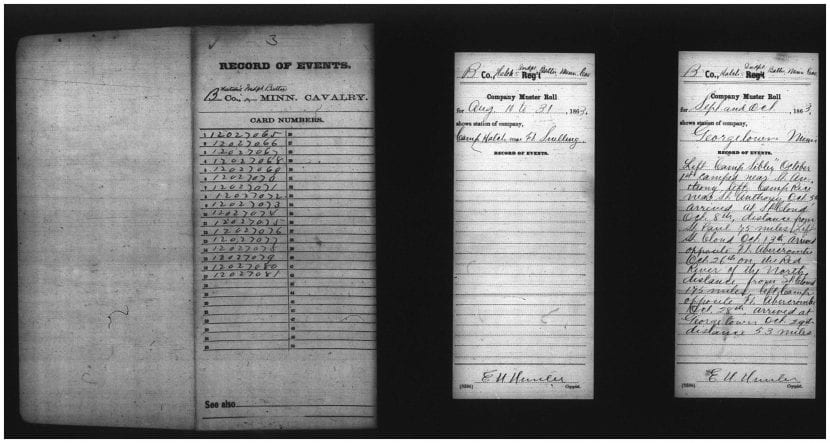 3
RECORD OF EVENTS.
Hatch's Indpt. Battn.
B Co., MINN. CAVALRY.
CARD NUMBERS.
1 12027065
2 12027066
3 12027067
4 12027068
5 12027069
6 12027070
7 12027071
8 12027072
9 12027073
10 12027074
11 12027075
12 12027076
13 12027077
14 12027078
15 12027079
16 12027080
17 12027081
See also
B Co., Hatch's Indpt. Battn. Minn. Cav.
Reg't
Company Muster Roll
for Aug 11 to 31, 1863,
shows station of company,
Camp Hatch near Ft. Snelling.
RECORD OF EVENTS.
E H Hunter
(330h) Copyist.
B Co., Hatch's Indpt. Battn. Minn. Cav.
Reg't
Company Muster Roll
for Sept and Oct, 1863,
shows station of company,
Georgetown Minn
RECORD OF EVENTS.
Left "Camp Sibley" October
1st camped near St. An-
thony, left Camp Rice
near St. Anthony Oct 5th
arrived at St Cloud
Oct. 8th, distance from
St Paul 75 miles. Left
St Cloud Oct 13th arrived
opposite Ft. Abercrombie
Oct 26th on the Red
River of the North,
distance from St Cloud
175 miles, left Camp
opposite Ft. Abercrombie
Oct. 28th arrived at
Georgetown Oct 29th
distance 53 miles
E H Hunter
Copyist.